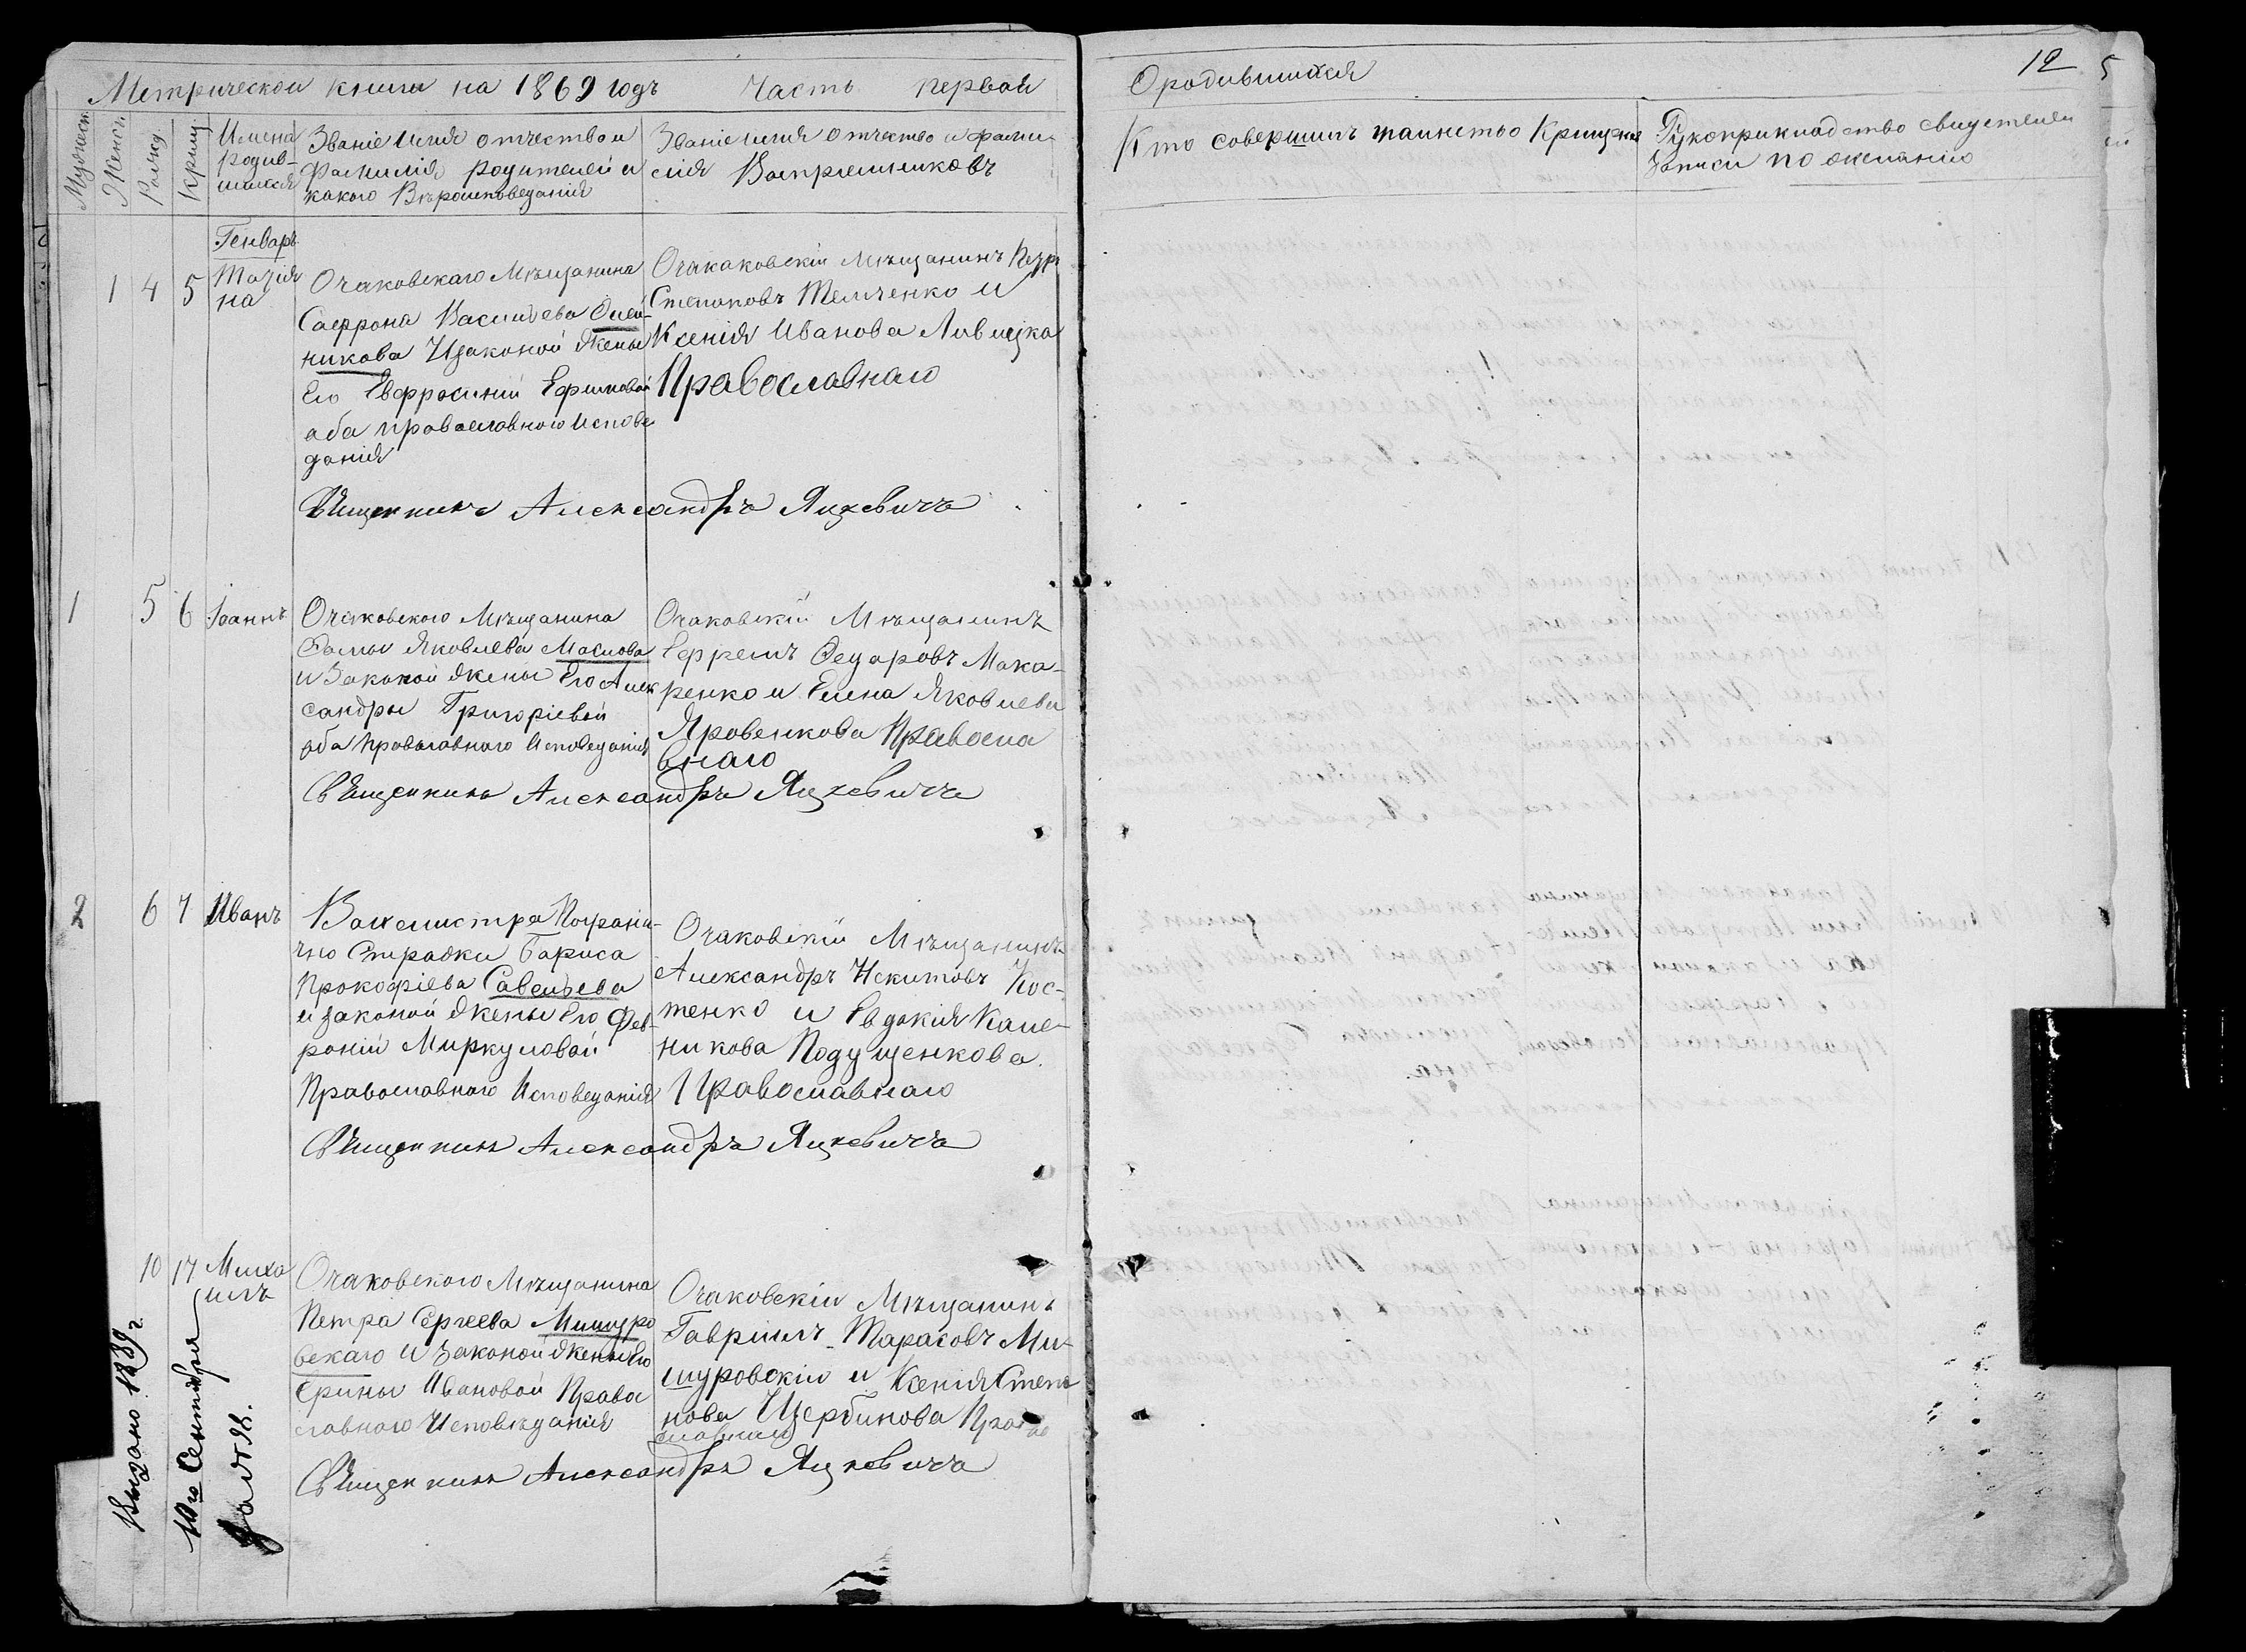 Метрической книги на 1869 годъ Часть первой
О родившихся
12
Мужеск. Женск. Рожд. Крищ.
Имена родив-шихся
Званіе имя отчество и
фамилия родителей и
какого Вѣроисповеданія
Званіе имя отчество и фами-
лія Воспріемниковъ
Кто совершилъ таинство Крищения
Рукоприкладство свидетелей
записи по желанию
Генварь
1 4 5
Татія
на
Очаковскаго Мѣщанина
Сафрона Васильева Олей-
никова И законой жены
Его Евфросиній Ефимовой
оба православного Испове
данія
Очакаковскій Мѣщанинъ Петръ
Степановъ Темченко и
Ксенія Иванова
Православнаго
Священникъ Александръ Яцкевичъ
1 5 6 Іоаннъ
Очаковского Мѣщанина
Фомы Яковлева Маслова
и Законой жены Его Алек
сандры Григоріевой
оба православного Исповеданія
Очаковскій Мѣщанинъ
Ефремъ Федаровъ Мака-
ренко и Елена Яковлева
Яровенкова Правосла
внаго
Священникъ Александръ Яцкевичъ
2 6 7 Иванъ
Вахмистра Пограни-
чно Стражи Бариса
Прокофіева Савельева
и законой жены Его Фев-
роній Миркуловой
Православного Исповеданія
Очаковскій Мѣщанинъ
Александръ Никитовъ Кос-
тенко и Евдокія Кале-
никова Подущенкова.
Православнаго
Священникъ Александръ Яцкевичъ
10 17 Миха
илъ
Очаковского Мѣщанина
Петра Сергеева Мишуро
вскаго и Законой жены Его
Ерины Ивановой Правос
лавного Исповѣданія
Очаковскій Мѣщанинъ
Гавріилъ Тарасовъ Ми-
шуровскій и Ксенія Степа
нова Щербинова Право
славнаго
Священникъ Александръ Яцкевичъ
Выдано 1889 г.
10го Сентября
за № 98.